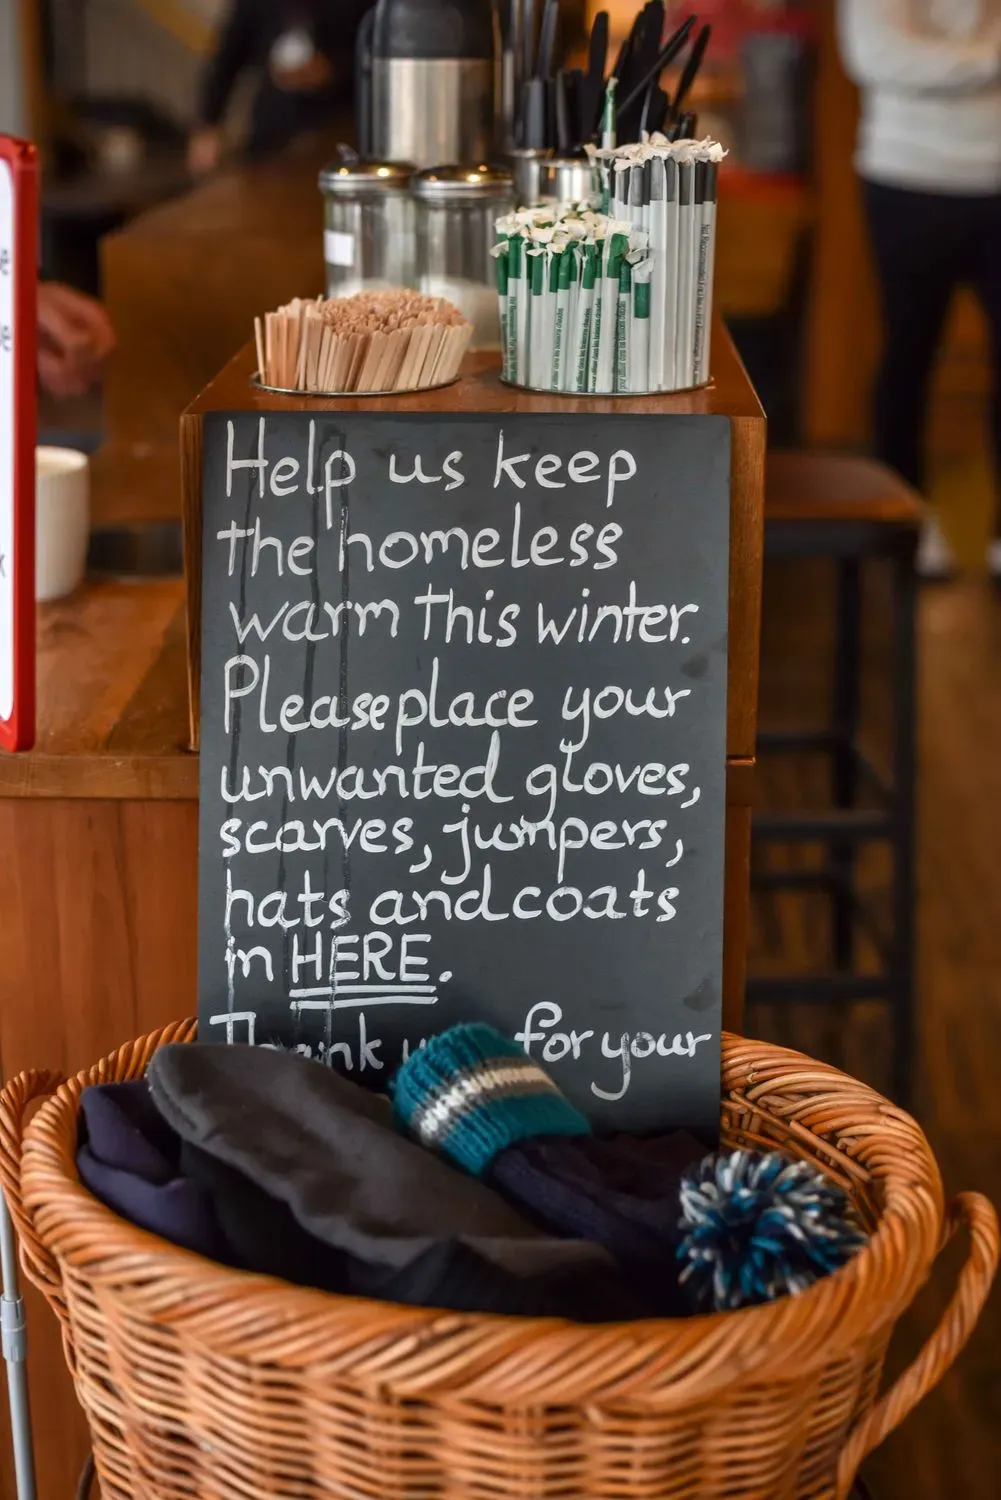 Help us keep
the homeless
warm this winter.
Please place your
unwanted gloves,
scarves, jumpers,
hats and coats
in HERE.
Thank for your